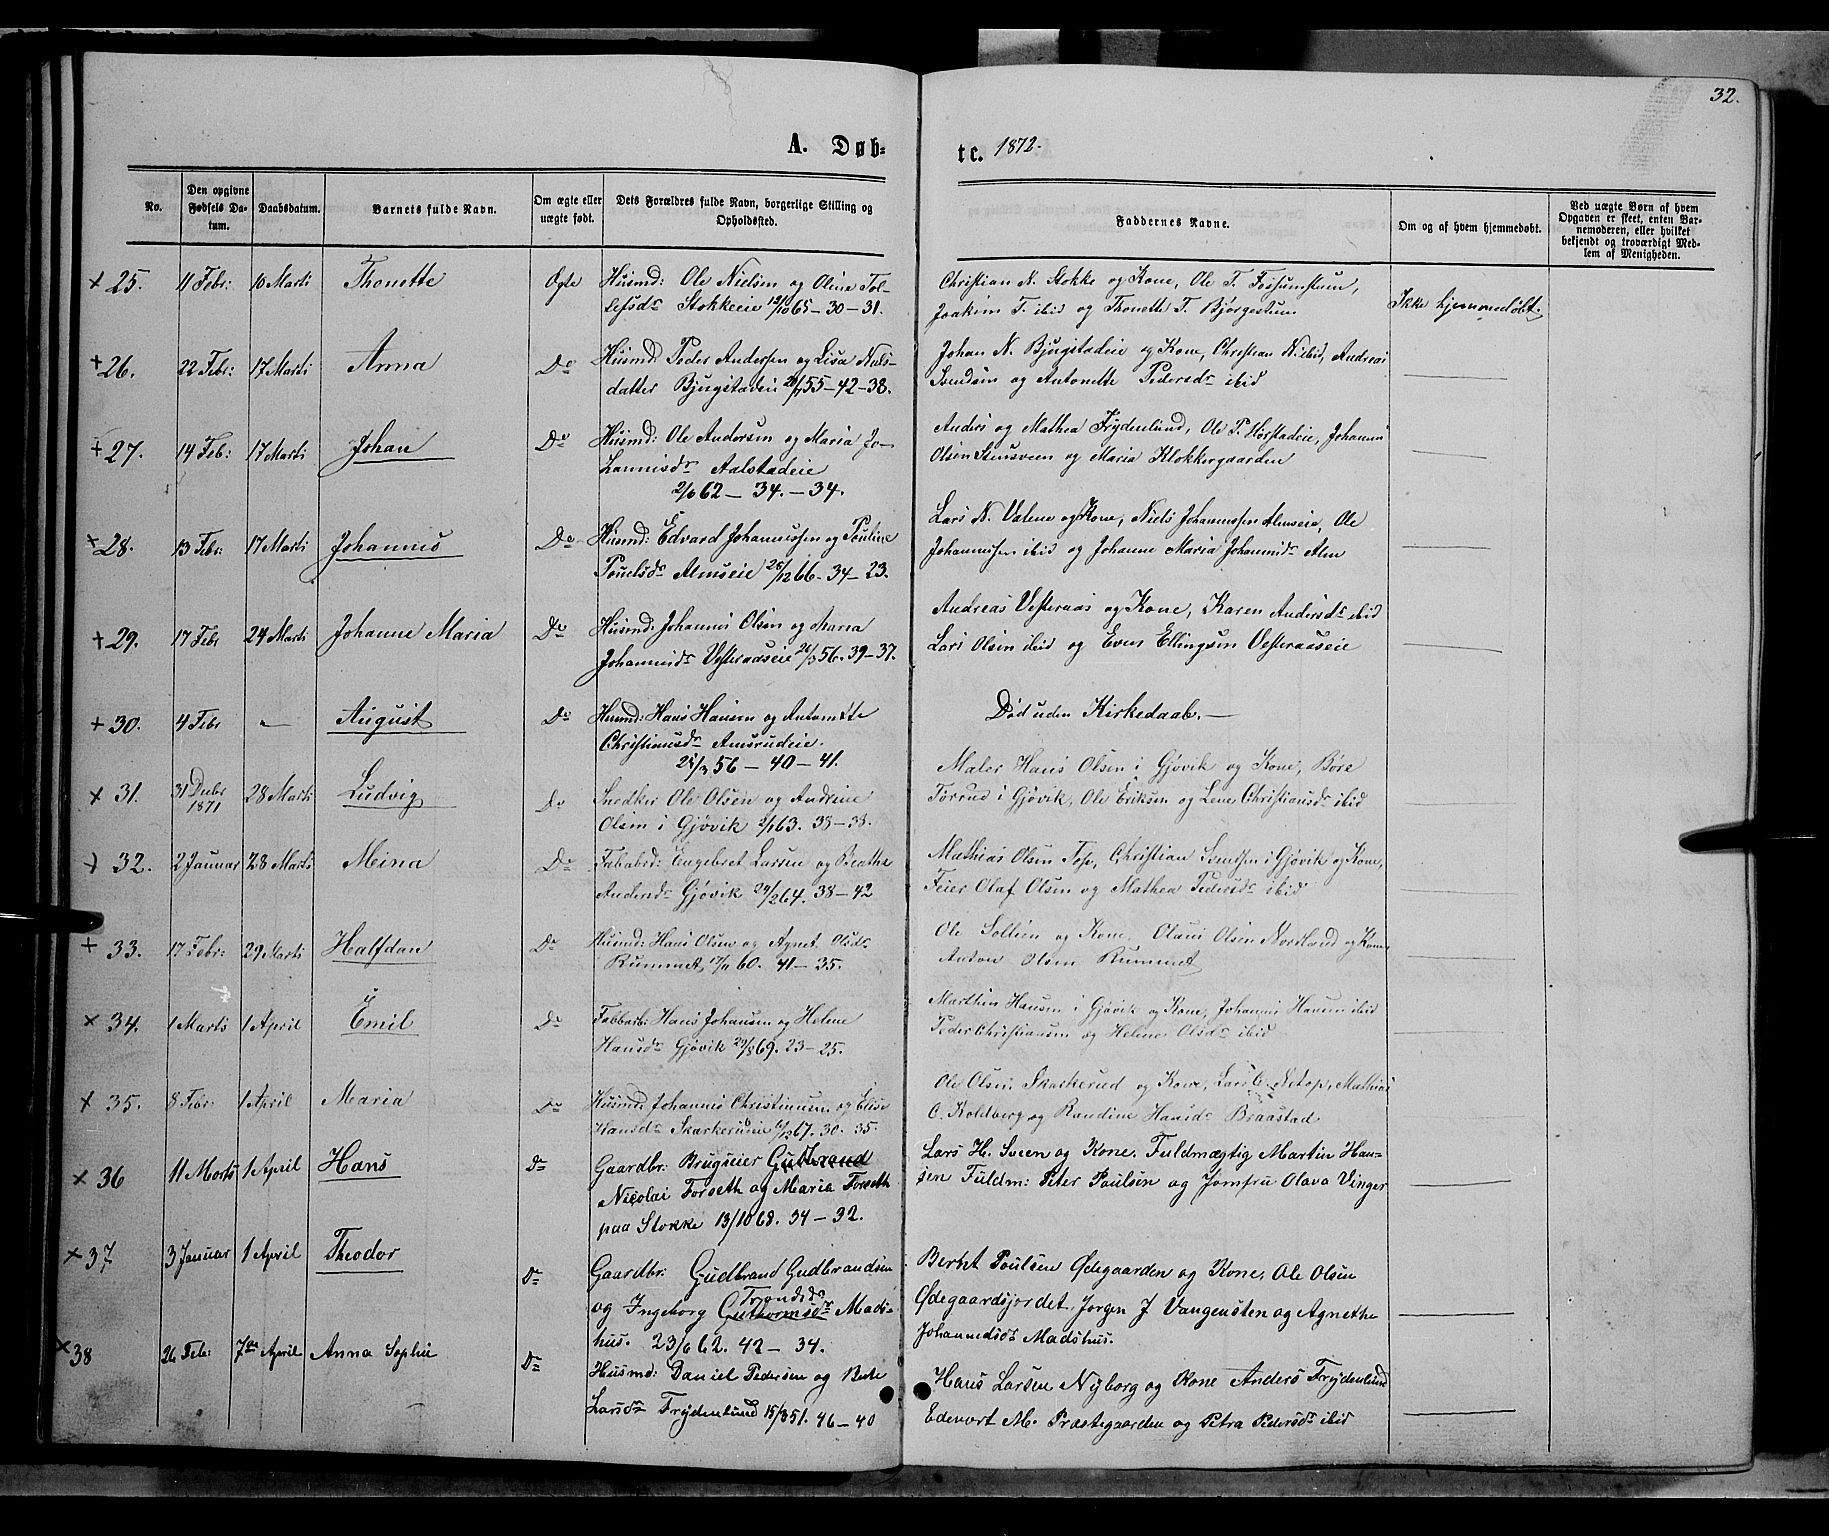 32.
A. Døb-
te. 1872.
No.
Den opgivne Fødsels Da-
tum.
Daabsdatum.
Barnets fulde Navn.
Om ægte eller
uægte født.
Dets Forældres fulde Navn, borgerlige Stilling og
Opholdssted.
Faddernes Navne.
Om og af hvem hjemmedøbt.
Ved uægte Børn af hvem
Opgaven er skeet, enten Bar-
nemoderen, eller hvilket
bekjendt og troværdigt Med-
lem af Menigheden.
+ 25. 11 Febr: 10 Marti Thonette Ægte Husmd: Ole Nielsen og Oline Tol-
lefsdr Stokkeie 12/10 65-30-31.
Christian N. Stokke og Kone, Ole T. Fossumstuen,
Joakim T. ibid og Thonette T. Bjørgestuen
Ikke hjemmedøbt.
+ 26. 22 Febr: 17 Marti Anna Do Husmd: Peder Andersen og Lisa Niels-
datter Bjugstadeie 55-42-38.
Johan N. Bjugstadeie og Kone, Christian N. ibid, Andreas
Svendsen og Antonette Pedersdr ibid
+ 27. 14 Feb: 17 Marti Johan Do Husmd: Ole Andersen og Maria Jo-
hannisdr Aalstadeie
2/6 62 - 34. - 34.
Anders og Mathea Frydenlund, Ole P. Hørstadeie, Johannis
Olsen Stensveen og Maria Klokkergaarden
+ 28. 13 Febr: 17 Marti Johannes Do Husmd: Edvard Johannessen og Pouline
Pouelsdr Almseie 26/12 66-34-23.
Lars N. Valene og Kone, Niels Johannessen Almseie, Ole
Johannessen ibid og Johanne Maria Johannisdr Alm
+ 29. 17 Febr 24 Marti Johanne Maria Do Husmd: Johannes Olsen og Maria
Johannisdr Vesteraaseie 21/3 56. 39-37.
Andreas Vesteraas og Kone, Karen Andersdr ibid
Lars Olsen ibid og Even Ellingsen Vesteraaseie
+ 30. 4 Febr - August Do Husmd: Hans Hansen og Antonette
Christiansdr Amsrudeie.
25/3 56 - 40 - 41.
Død uden Kirkedaab. -
+ 31. 31 Decbr
1871 28 Marti Ludvig Do Snedker Ole Olsen og Andrine
Olsen i Gjøvik 2/1 63. 38-38.
Maler Hans Olsen i Gjøvik og Kone, Børe
Torrud i Gjøvik, Ole Eriksen og Lene Christiansdr ibid
+ 32. 2 Januar 28 Marts Meina Do Fabarbd: Engebret Larsen og Beathe
Andersdr Gjøvik 29/12 64. 38-42
Mathias Olsen Tose, Christian Svendsen i Gjøvik og Kone,
Feier Olaf Olsen og Mathea Pedersdr ibid
+ 33. 17 Febr: 29 Marti Halfdan Do Husmd: Hans Olsen og Agnet. Olsdr
Rummet, 17/11 60. 41-35.
Ole Sollien og Kone, Olaus Olsen Nordland og Kone
Anton Olsen Rummet
+ 34. 1 Marts 1 April Emil Do Fabbarb: Hans Johansen og Helene
Hansdr Gjøvik 29/8 69. 23-25.
Marthin Hansen i Gjøvik og Kone, Johannes Hansen ibid
Peder Christiansen og Helene Olsdr ibid
+ 35. 8 Febr: 1 April Maria Do Husmd: Johannes Christiansen og Elise
Hansdr Skarkerudeie 67. 30. 35.
Ole Olsen Skarkerud og Kone, Lars C. Netop, Mathias
O. Koldberg og Randine Hansdr Braastad
+ 36 11 Marts 1 April Hans Do Gaardbr: Brugseier Gudbrand
Nicolai Forseth og Maria Forseth
paa Stokke 13/10 68. 34-32.
Lars H. Sveen og Kone. Fuldmægtig Martin Han-
sen Fuldm: Peter Poulsen og Jomfru Olava Vinger
+ 37 3 Januar 1 April Theodor Do Gaardbr: Gudbrand Gudbrandsen
Trondsdr
og Ingeborg Guthormsdr Mads-
hus. 23/6 62. 42 - 34.
Bernt Poulsen Ødegaarden og Kone, Ole Olsen
Ødegaardsjordet, Jørgen J Vangensten og Agnethe
Johannesdr Madshus.
+ 38 26 Feb: 7de April Anna Sophie Do Husmd: Daniel Pedersen og Berte
Larsdr Frydenlund 15/3 51. 46-40
Hans Larsen Nyborg og Kone Anders Frydenlund
Edevart M. Præstegaarden og Petra Pedersdr ibid